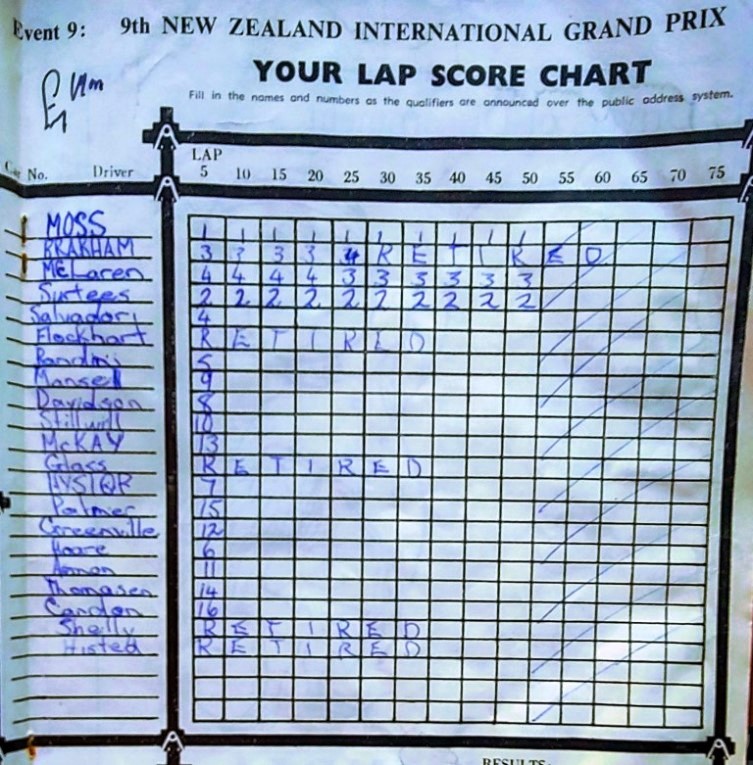 Event 9: 9th NEW ZEALAND INTERNATIONAL GRAND PRIX
YOUR LAP SCORE CHART
Fill in the names and numbers as the qualifiers are announced over the public address system.
LAP
No. Driver 5 10 15 20 25 30 35 40 45 50 55 60 65 70 75
MOSS 1 1 1 1 1 1 1 1 1 1
BRABHAM 3 3 3 3 4 R E T I R E D
McLaren 4 4 4 4 3 3 3 3 3 3
Surtees 2 2 2 2 2 2 2 2 2 2
Salvadori 4
Flockhart R E T I R E D
Bandini 5
Mansell 9
Davidson 8
Stillwell 10
McKAY 13
Glass R E T I R E D
HYSLOP 7
Palmer 15
Greenville 12
Hoare 6
Amon 11
Thomasen 14
16
Shelly R E T I R E D
Histed R E T I R E D
RESULTS: